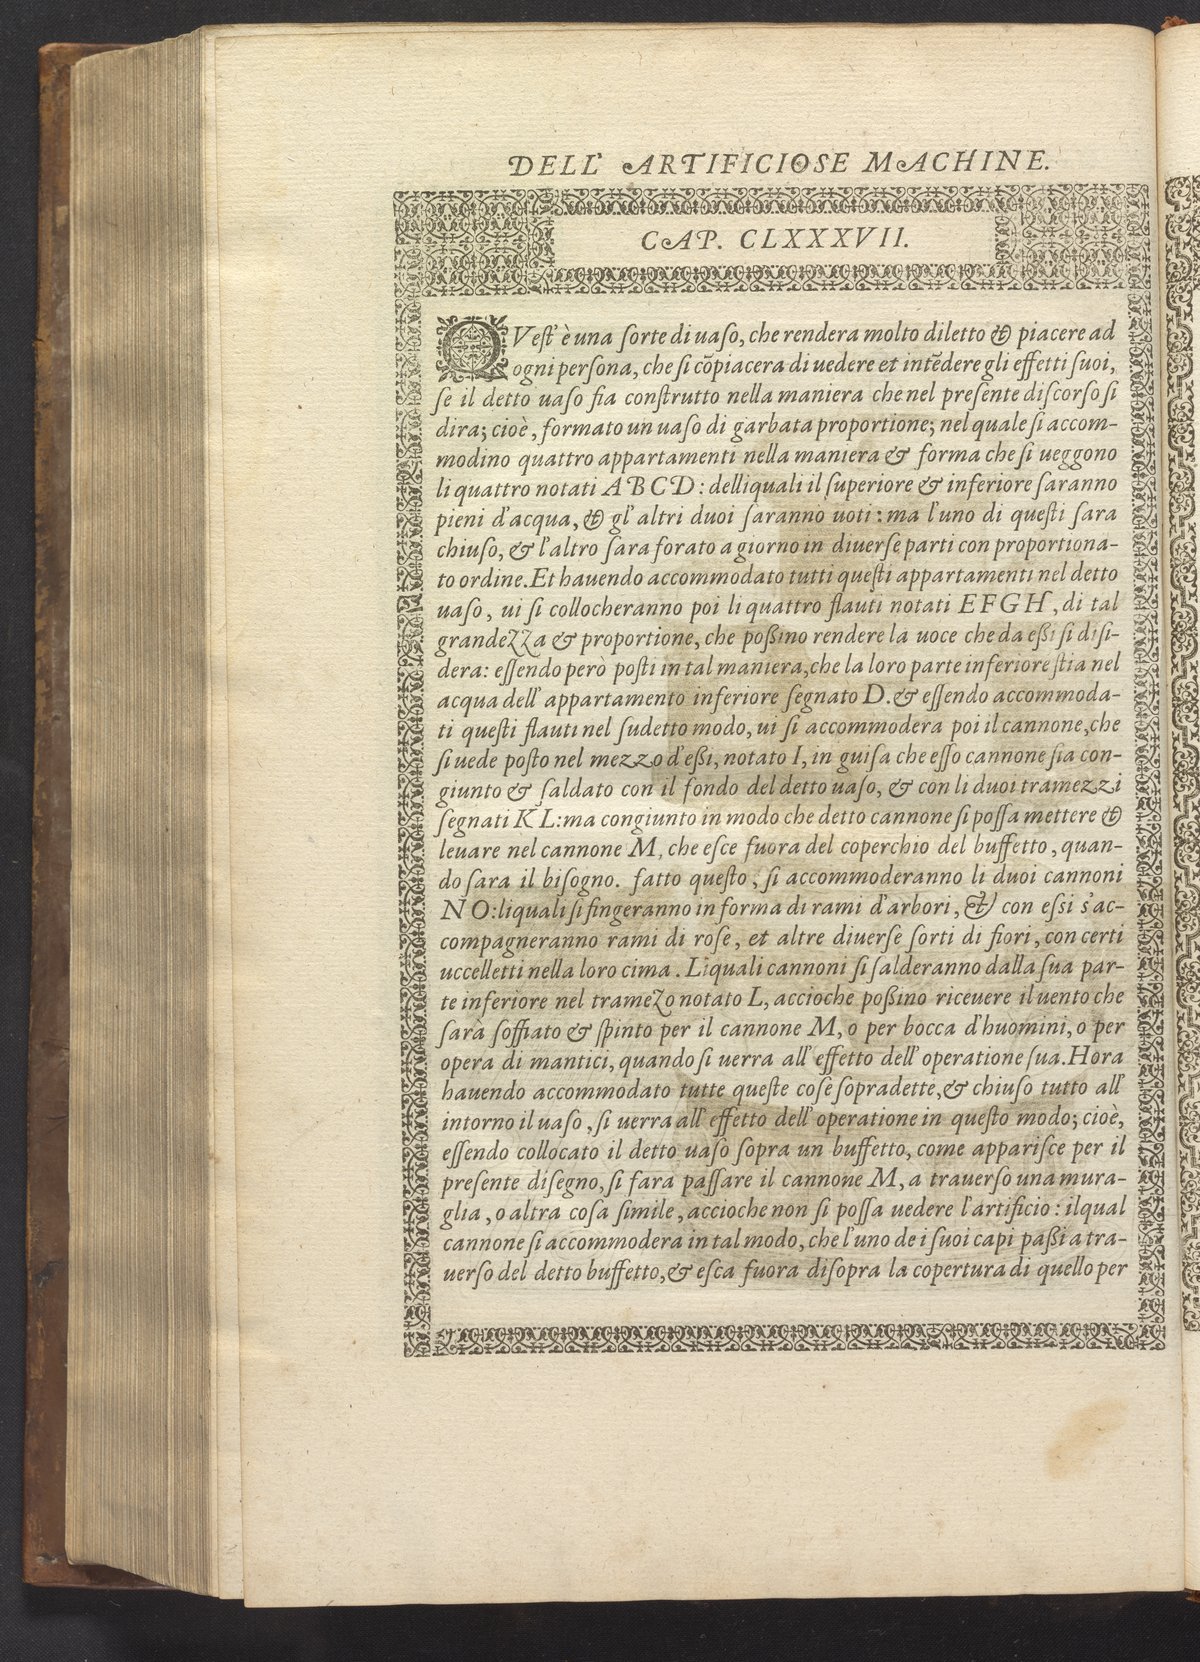 DELL' ARTIFICIOSE MACHINE.
CAP. CLXXXVII.
QVest' è una sorte di uaso, che rendera molto diletto & piacere ad
ogni persona, che si cõpiacera di uedere et intẽdere gli effetti suoi,
se il detto uaso sia construtto nella maniera che nel presente discorso si
dira; cioè, formato un uaso di garbata proportione; nel quale si accom-
modino quattro appartamenti nella maniera & forma che si ueggono
li quattro notati ABCD: delliquali il superiore & inferiore saranno
pieni d'acqua, & gl' altri duoi saranno uoti: ma l'uno di questi sara
chiuso, & l'altro sara forato a giorno in diuerse parti con proportiona-
to ordine. Et hauendo accommodato tutti questi appartamenti nel detto
uaso, ui si collocheranno poi li quattro flauti notati EFGH, di tal
grandezza & proportione, che poßino rendere la uoce che da eßi si disi-
dera: essendo però posti in tal maniera, che la loro parte inferiore stia nel
acqua dell' appartamento inferiore segnato D. & essendo accommoda-
ti questi flauti nel sudetto modo, ui si accommodera poi il cannone, che
si uede posto nel mezzo d'eßi, notato I, in guisa che esso cannone sia con-
giunto & saldato con il fondo del detto uaso, & con li duoi tramezzi
segnati KL: ma congiunto in modo che detto cannone si possa mettere &
leuare nel cannone M, che esce fuora del coperchio del buffetto, quan-
do sara il bisogno. fatto questo, si accommoderanno li duoi cannoni
NO: liquali si fingeranno in forma di rami d'arbori, & con essi s'ac-
compagneranno rami di rose, et altre diuerse sorti di fiori, con certi
uccelletti nella loro cima. Liquali cannoni si salderanno dalla sua par-
te inferiore nel tramezo notato L, accioche poßino riceuere il uento che
sarà soffiato & spinto per il cannone M, o per bocca d'huomini, o per
opera di mantici, quando si uerra all' effetto dell' operatione sua. Hora
hauendo accommodato tutte queste cose sopradette, & chiuso tutto all'
intorno il uaso, si uerra all' effetto dell' operatione in questo modo; cioè,
essendo collocato il detto uaso sopra un buffetto, come apparisce per il
presente disegno, si fara passare il cannone M, a trauerso una mura-
glia, o altra cosa simile, accioche non si possa uedere l'artificio: ilqual
cannone si accommodera in tal modo, che l'uno de i suoi capi paßi a tra-
uerso del detto buffetto, & esca fuora disopra la copertura di quello per